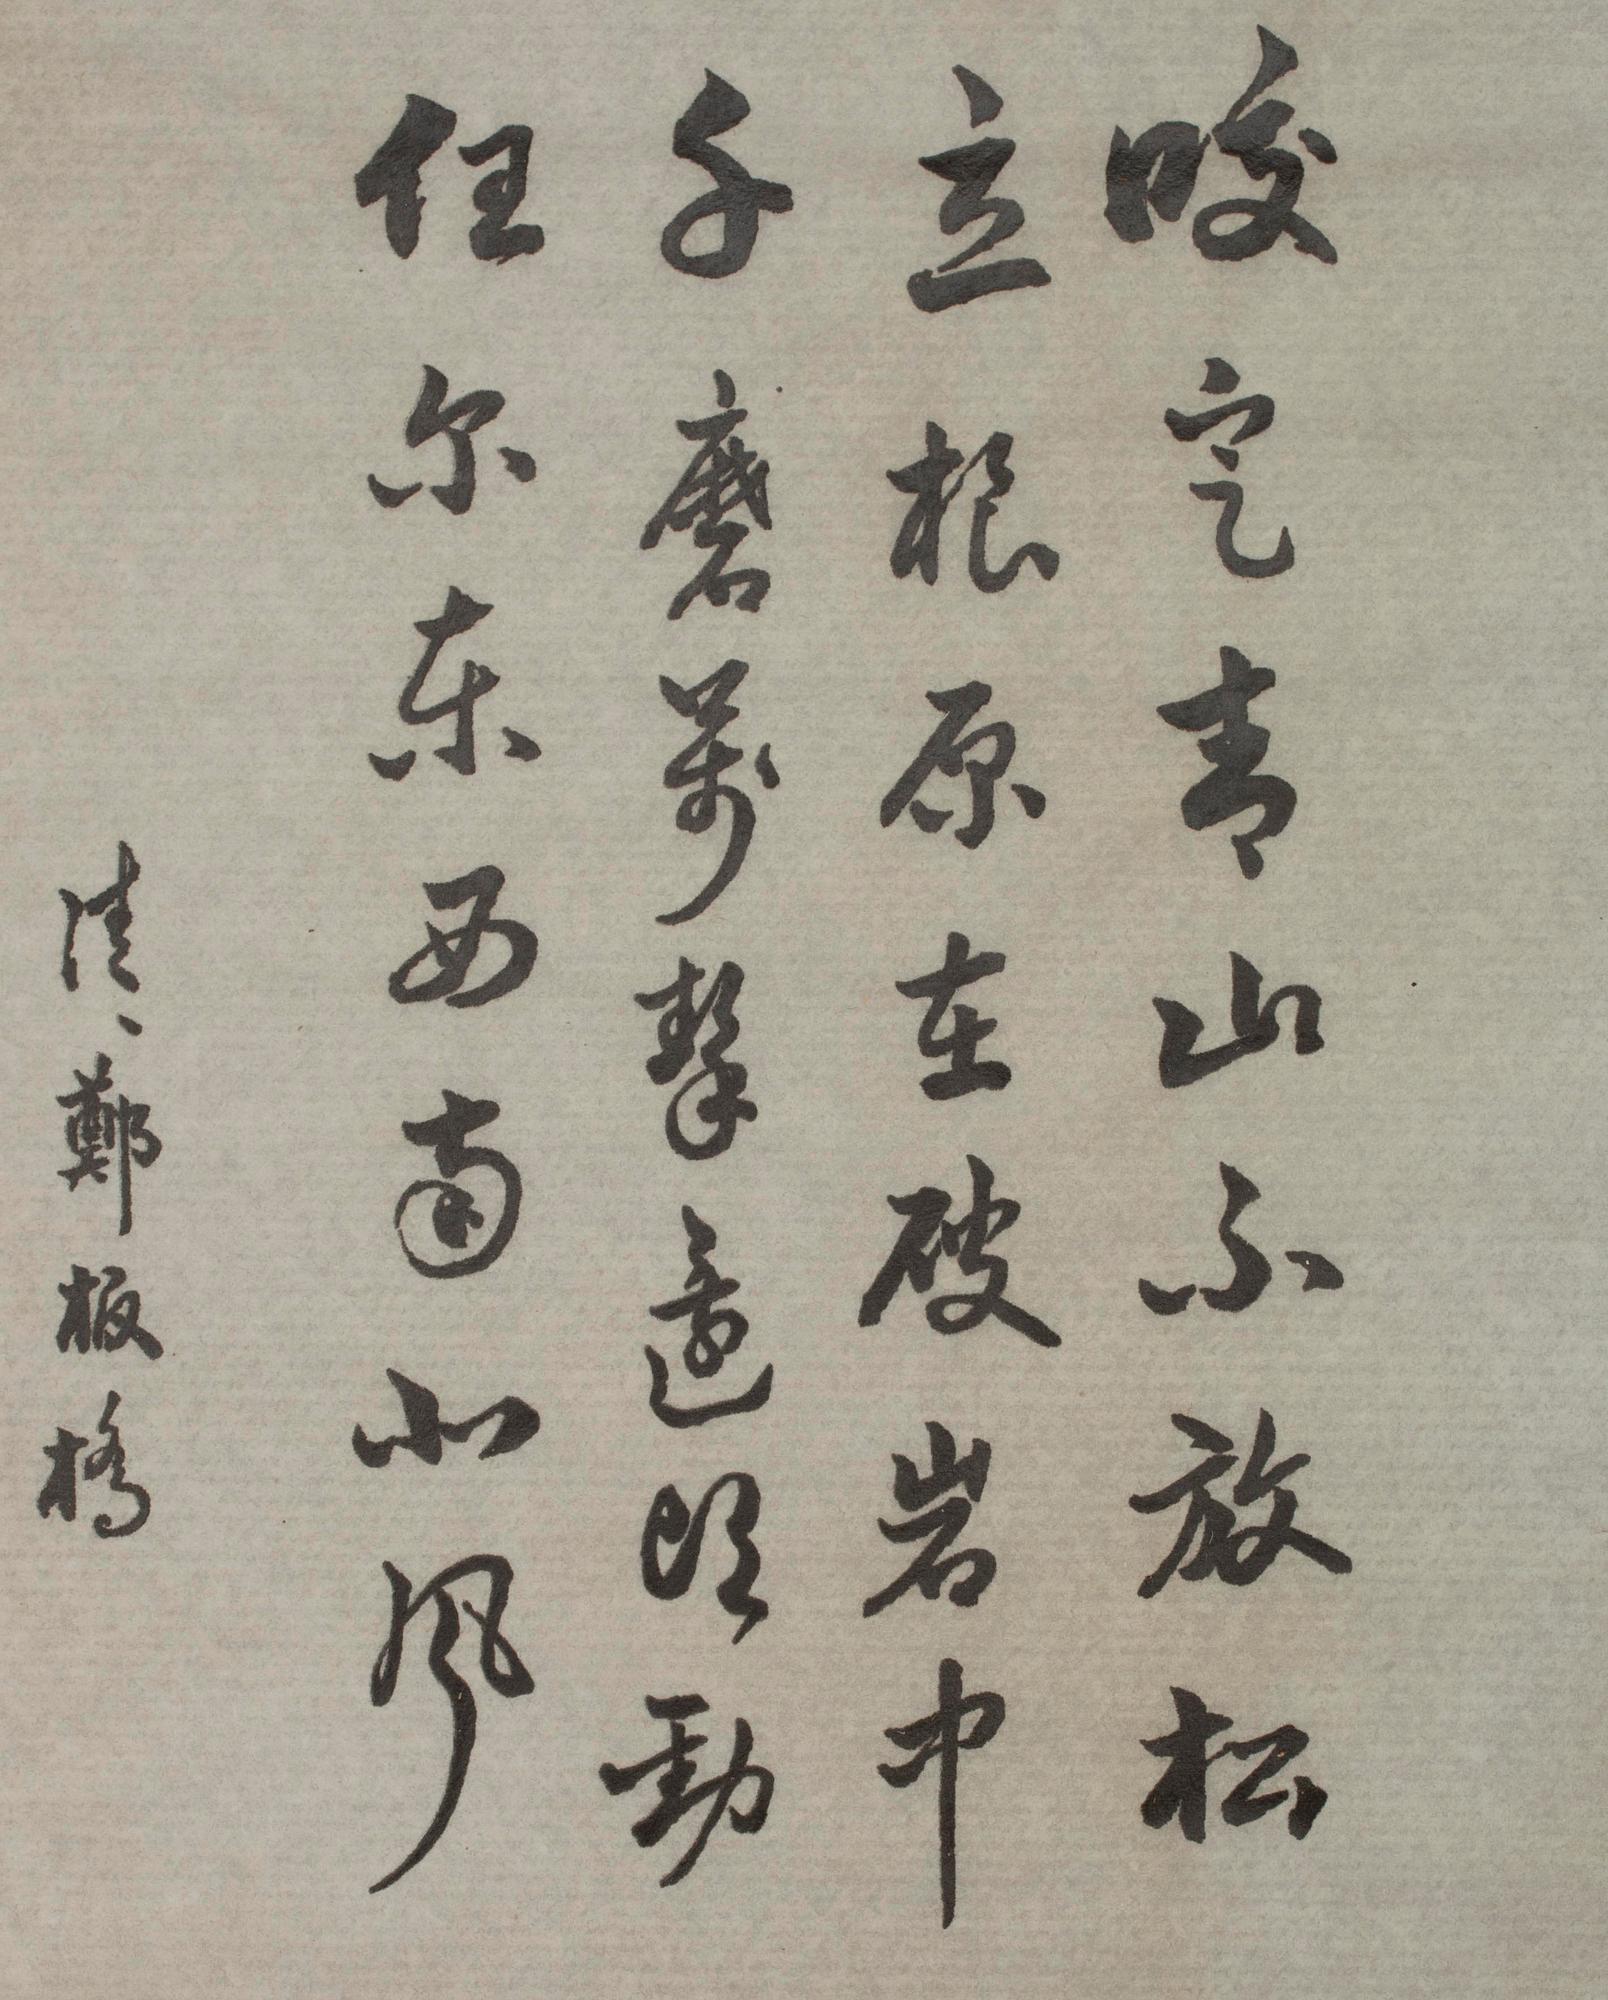 咬定青山不放松
立根原在破岩中
千磨萬擊還堅勁
任尔东西南北风
清、鄭板橋